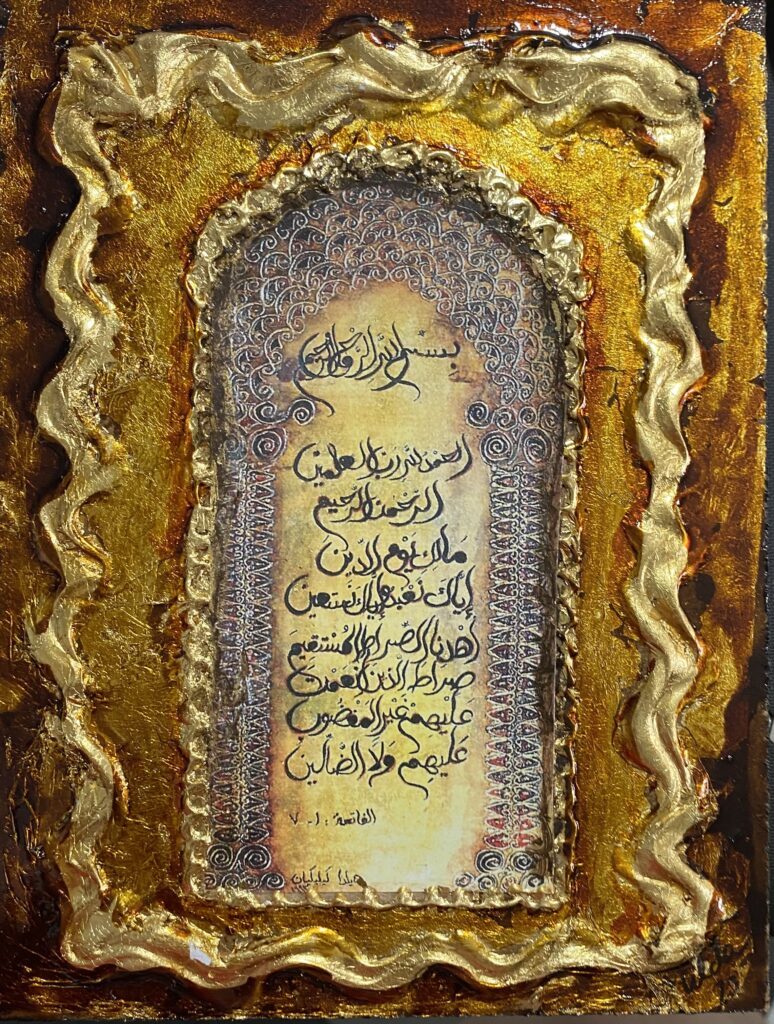 بسم الله الرحمن الرحيم
الحمد لله رب العلمين
الرحمن الرحيم
مالك يوم الدين
إياك نعبد وإياك نستعين
إهدنا الصراط المُسْتقيمَ
صراط الذين أنعمت
عليهمْ غير المغضوب
عَليهم وَلَا الضالين
الفاتحة : ١ - ٧